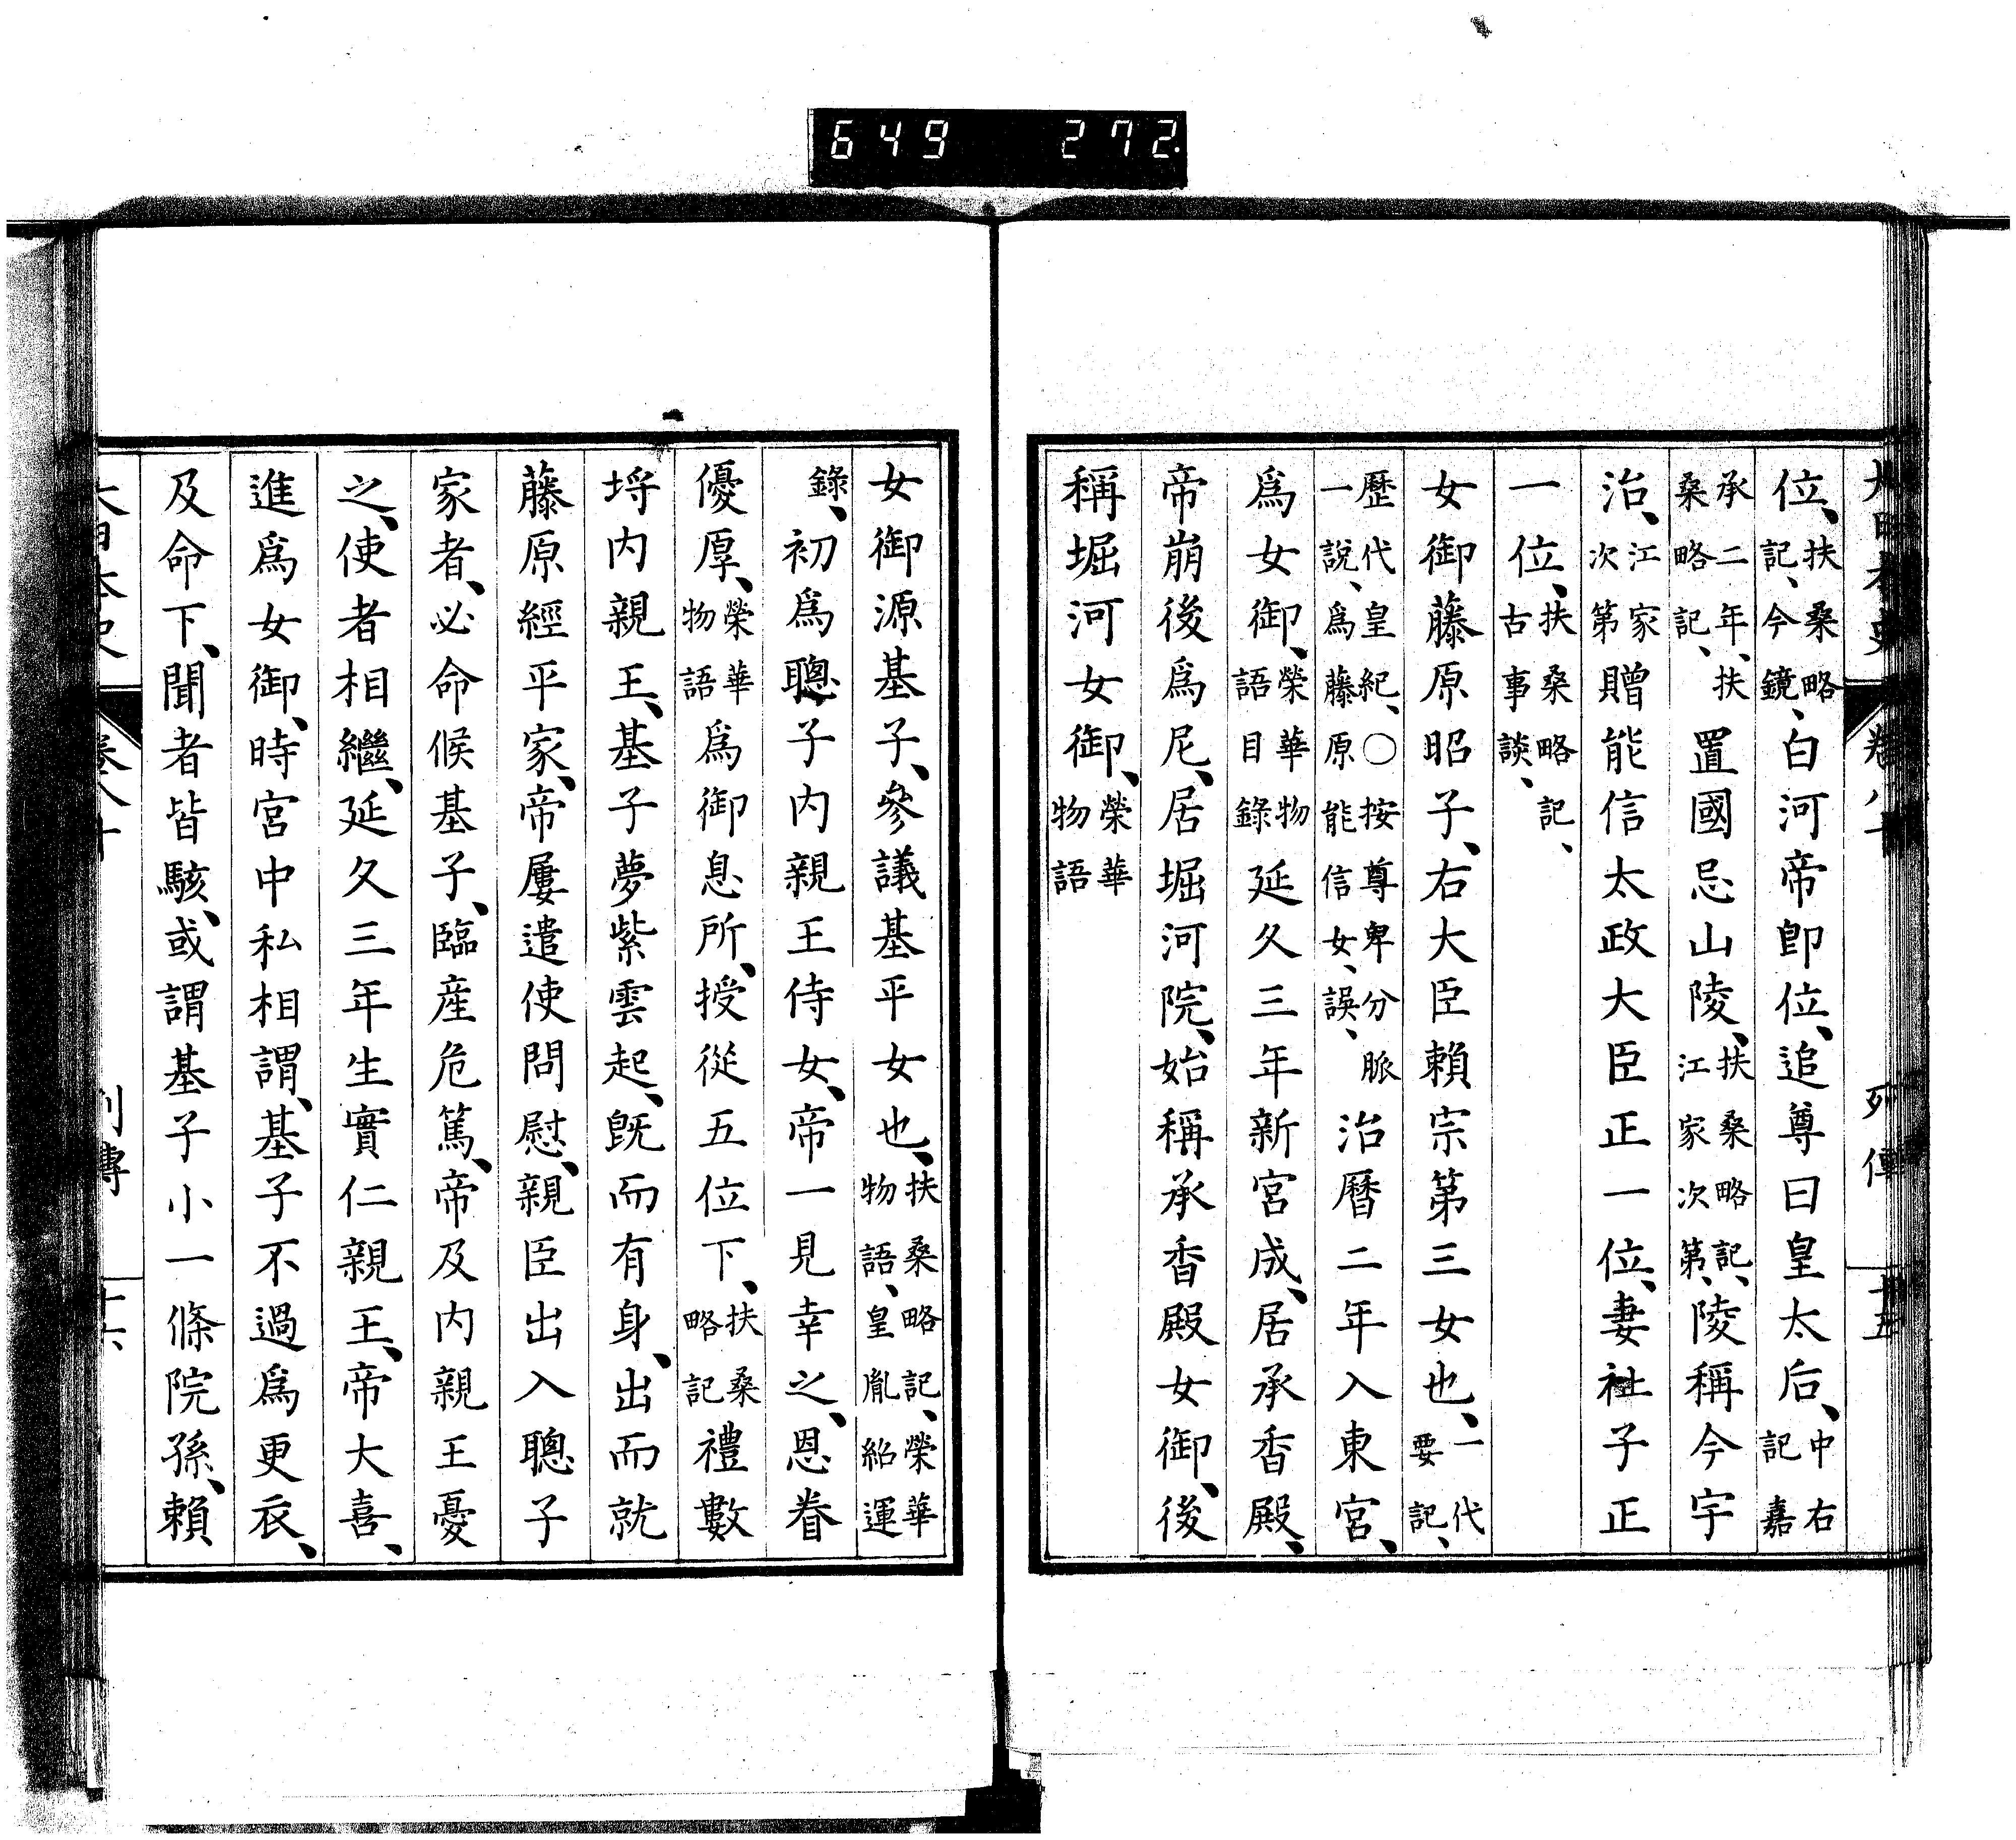 649 272
位、扶桑略記、今鏡、白河帝卽位、追尊曰皇太后、中右記嘉
承二年、扶桑略記、置國忌山陵、扶桑略記、江家次第、陵稱今宇
治、江家次第贈能信太政大臣正一位、妻祉子正
一位、扶桑略記、古事談、
女御藤原昭子、右大臣賴宗第三女也、一代要記、
歷代皇紀、〇按尊卑分脈一說、爲藤原能信女、誤、治曆二年入東宮、
爲女御、榮華物語目錄延久三年新宮成、居承香殿、
帝崩後爲尼、居堀河院、始稱承香殿女御、後
稱堀河女御、榮華物語
女御源基子、參議基平女也、扶桑略記、榮華物語、皇胤紹運
錄、初爲聰子內親王侍女、帝一見幸之、恩眷
優厚、榮華物語爲御息所、授從五位下、扶桑略記禮數
埒内親王、基子夢紫雲起、旣而有身、出而就
藤原經平家、帝屢遣使問慰、親臣出入聰子
家者、必命候基子、臨産危篤、帝及内親王憂
之、使者相繼、延久三年生實仁親王、帝大喜、
進爲女御、時宮中私相謂、基子不過爲更衣、
及命下、聞者皆駭、或謂基子小一條院孫、賴